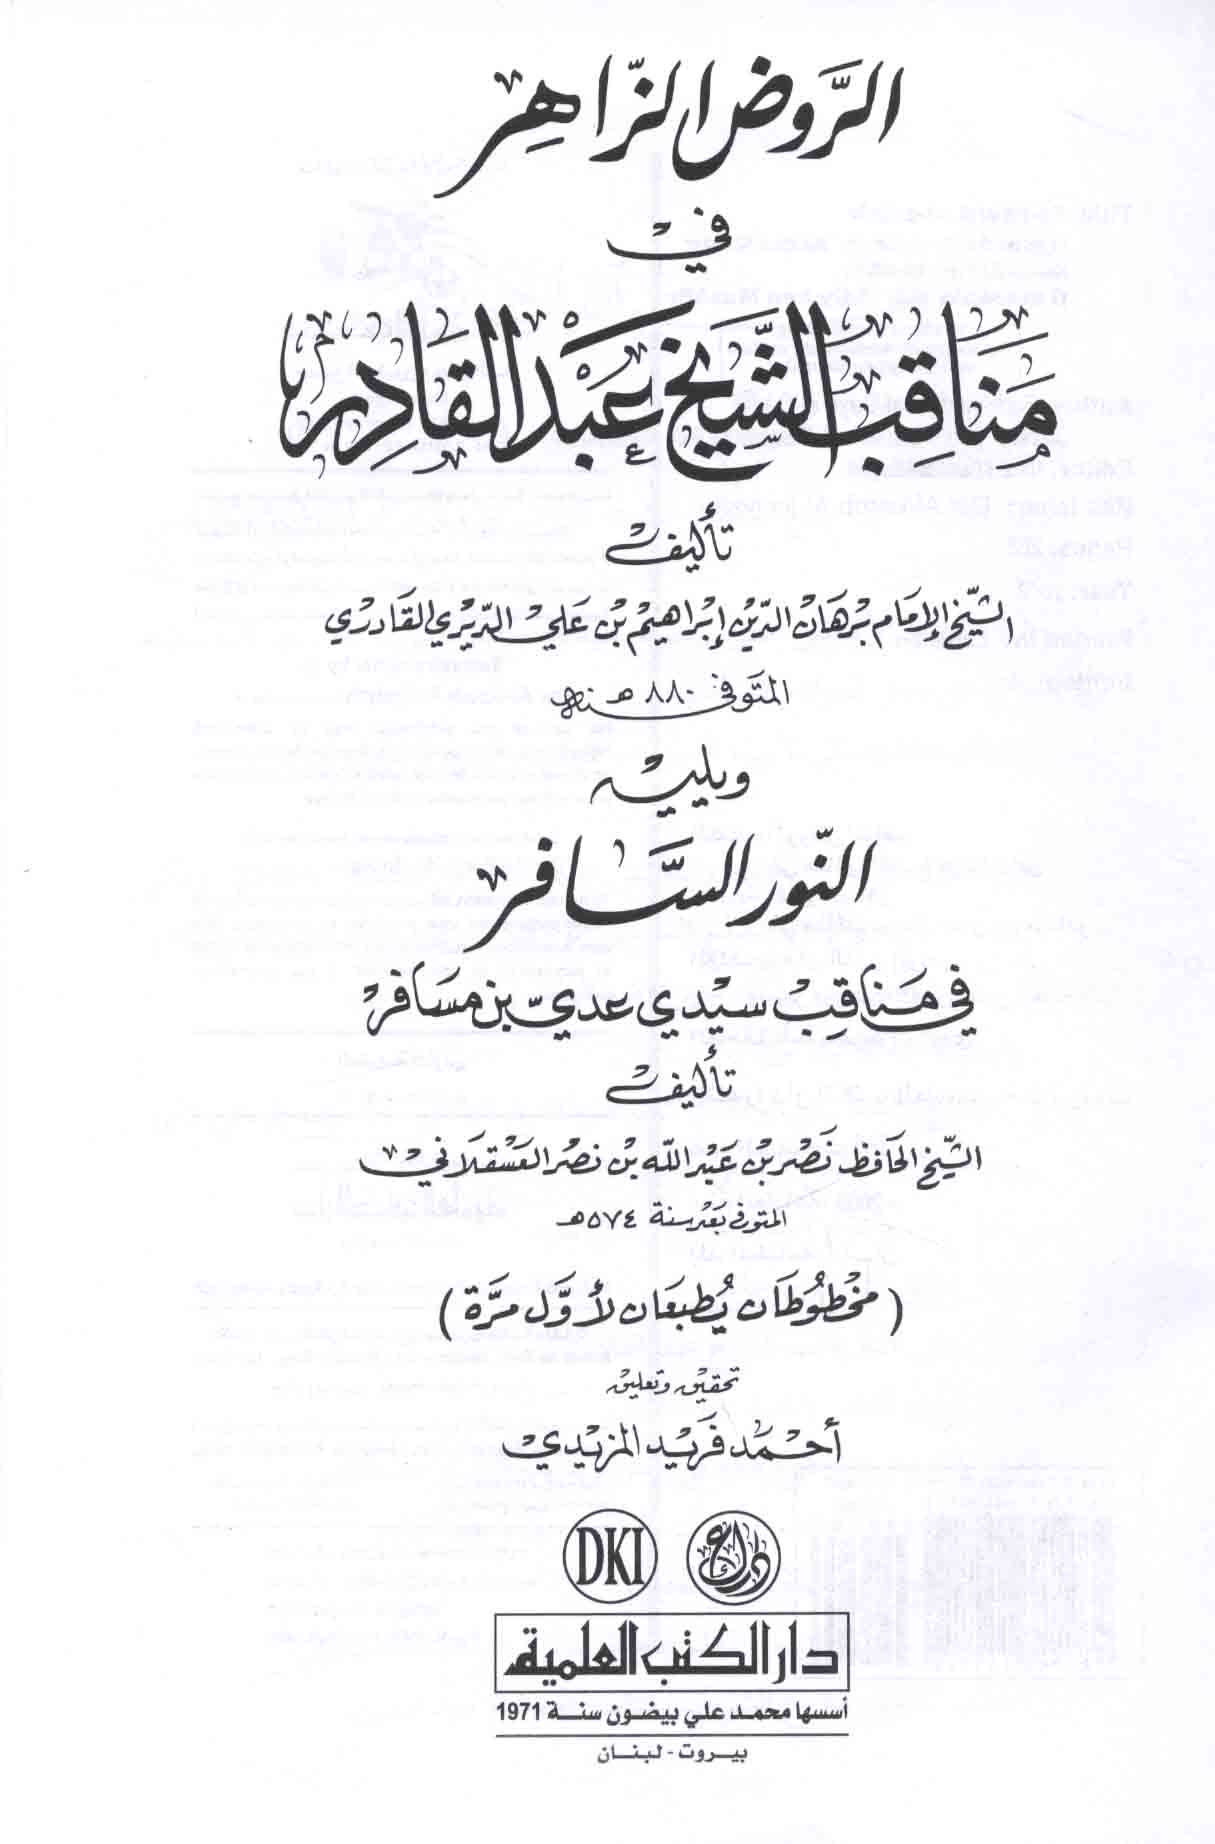 الرَّوض الزَّاهِر
في
مَنَاقِب الشَّيْخ عَبْد القَادِر
تأليف
الشيّخ الإمَام بُرهَان الدِّين إبْراهيْم بْن عَلي الدِّيْري القَادري
المتَوفى سنة ٨٨٠ هـ
ويليه
النّور السَّافر
في مَنَاقِب سيّدي عديّ بن مسَافر
تأليف
الشّيْخ الحَافظ نَصْر بْن عَبْد الله بْن نصْر العَسْقلَاني
المتوفى بَعْد سنة ٥٧٤ هـ
( مخطُوطَان يُطبعَان لأوَّل مرَّة )
تحقيق وتعليق
أحمَد فَريْد المزيْدي
DKI
دار الكتب العلمية
أسسها محمد علي بيضون سنة 1971
بيروت - لبنان